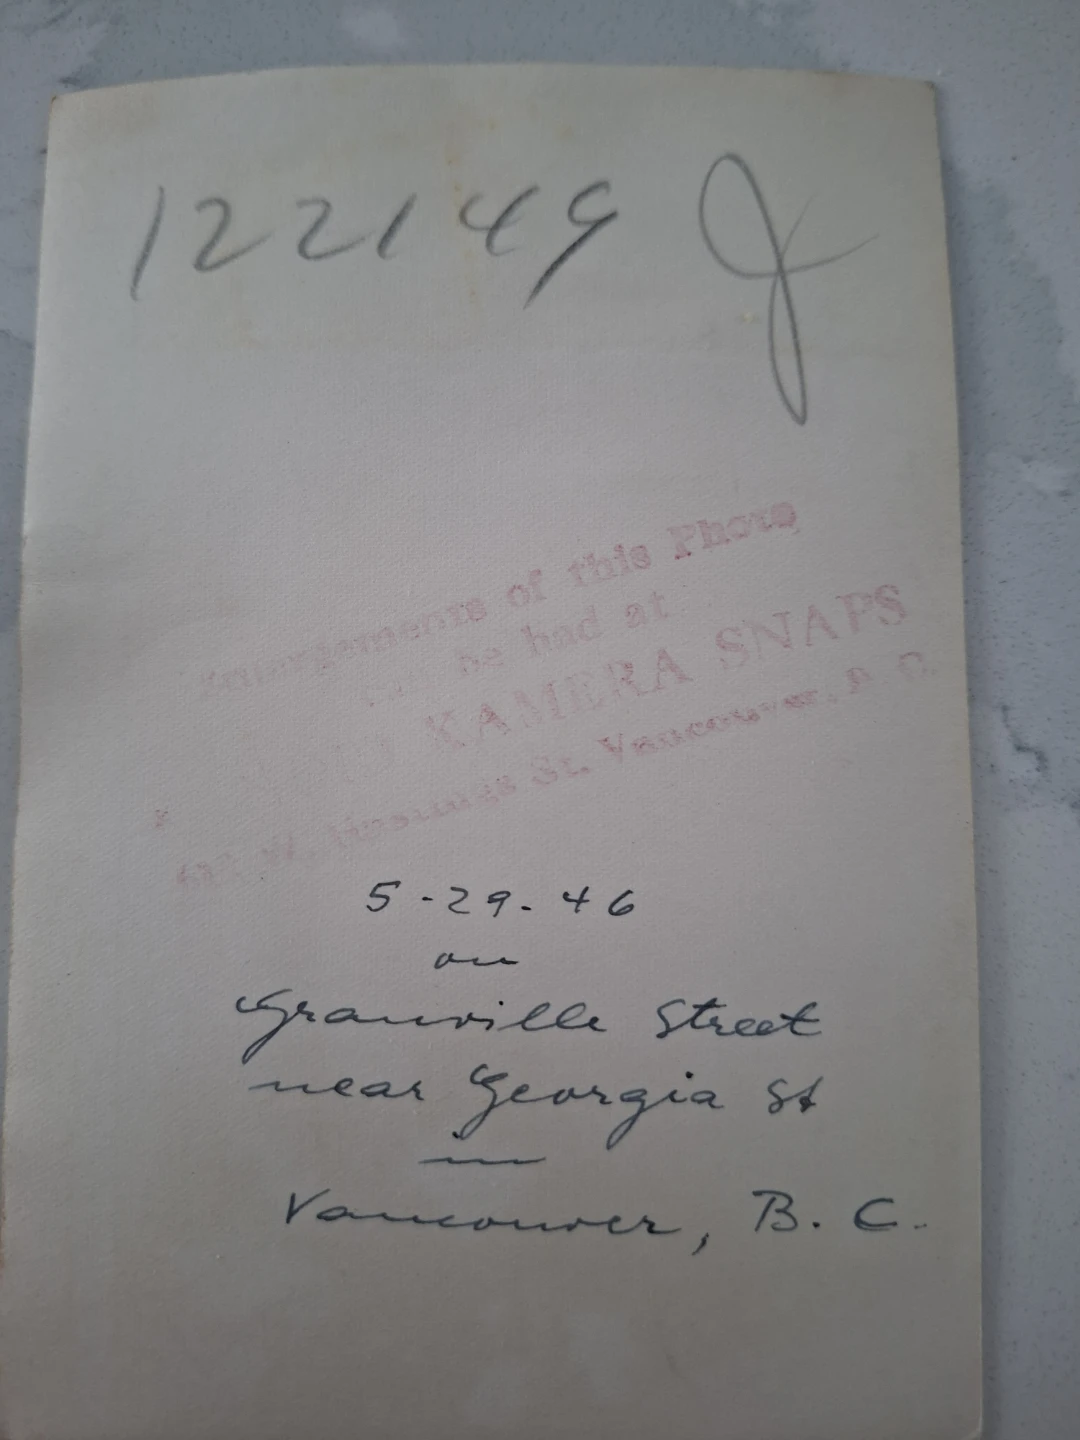 122149 J
Enlargements of this Photo
be had at
KAMERA SNAPS
W. Hastings St. Vancouver, B. C.
5-29-46
on
Granville Street
near Georgia St
in
Vancouver, B. C.